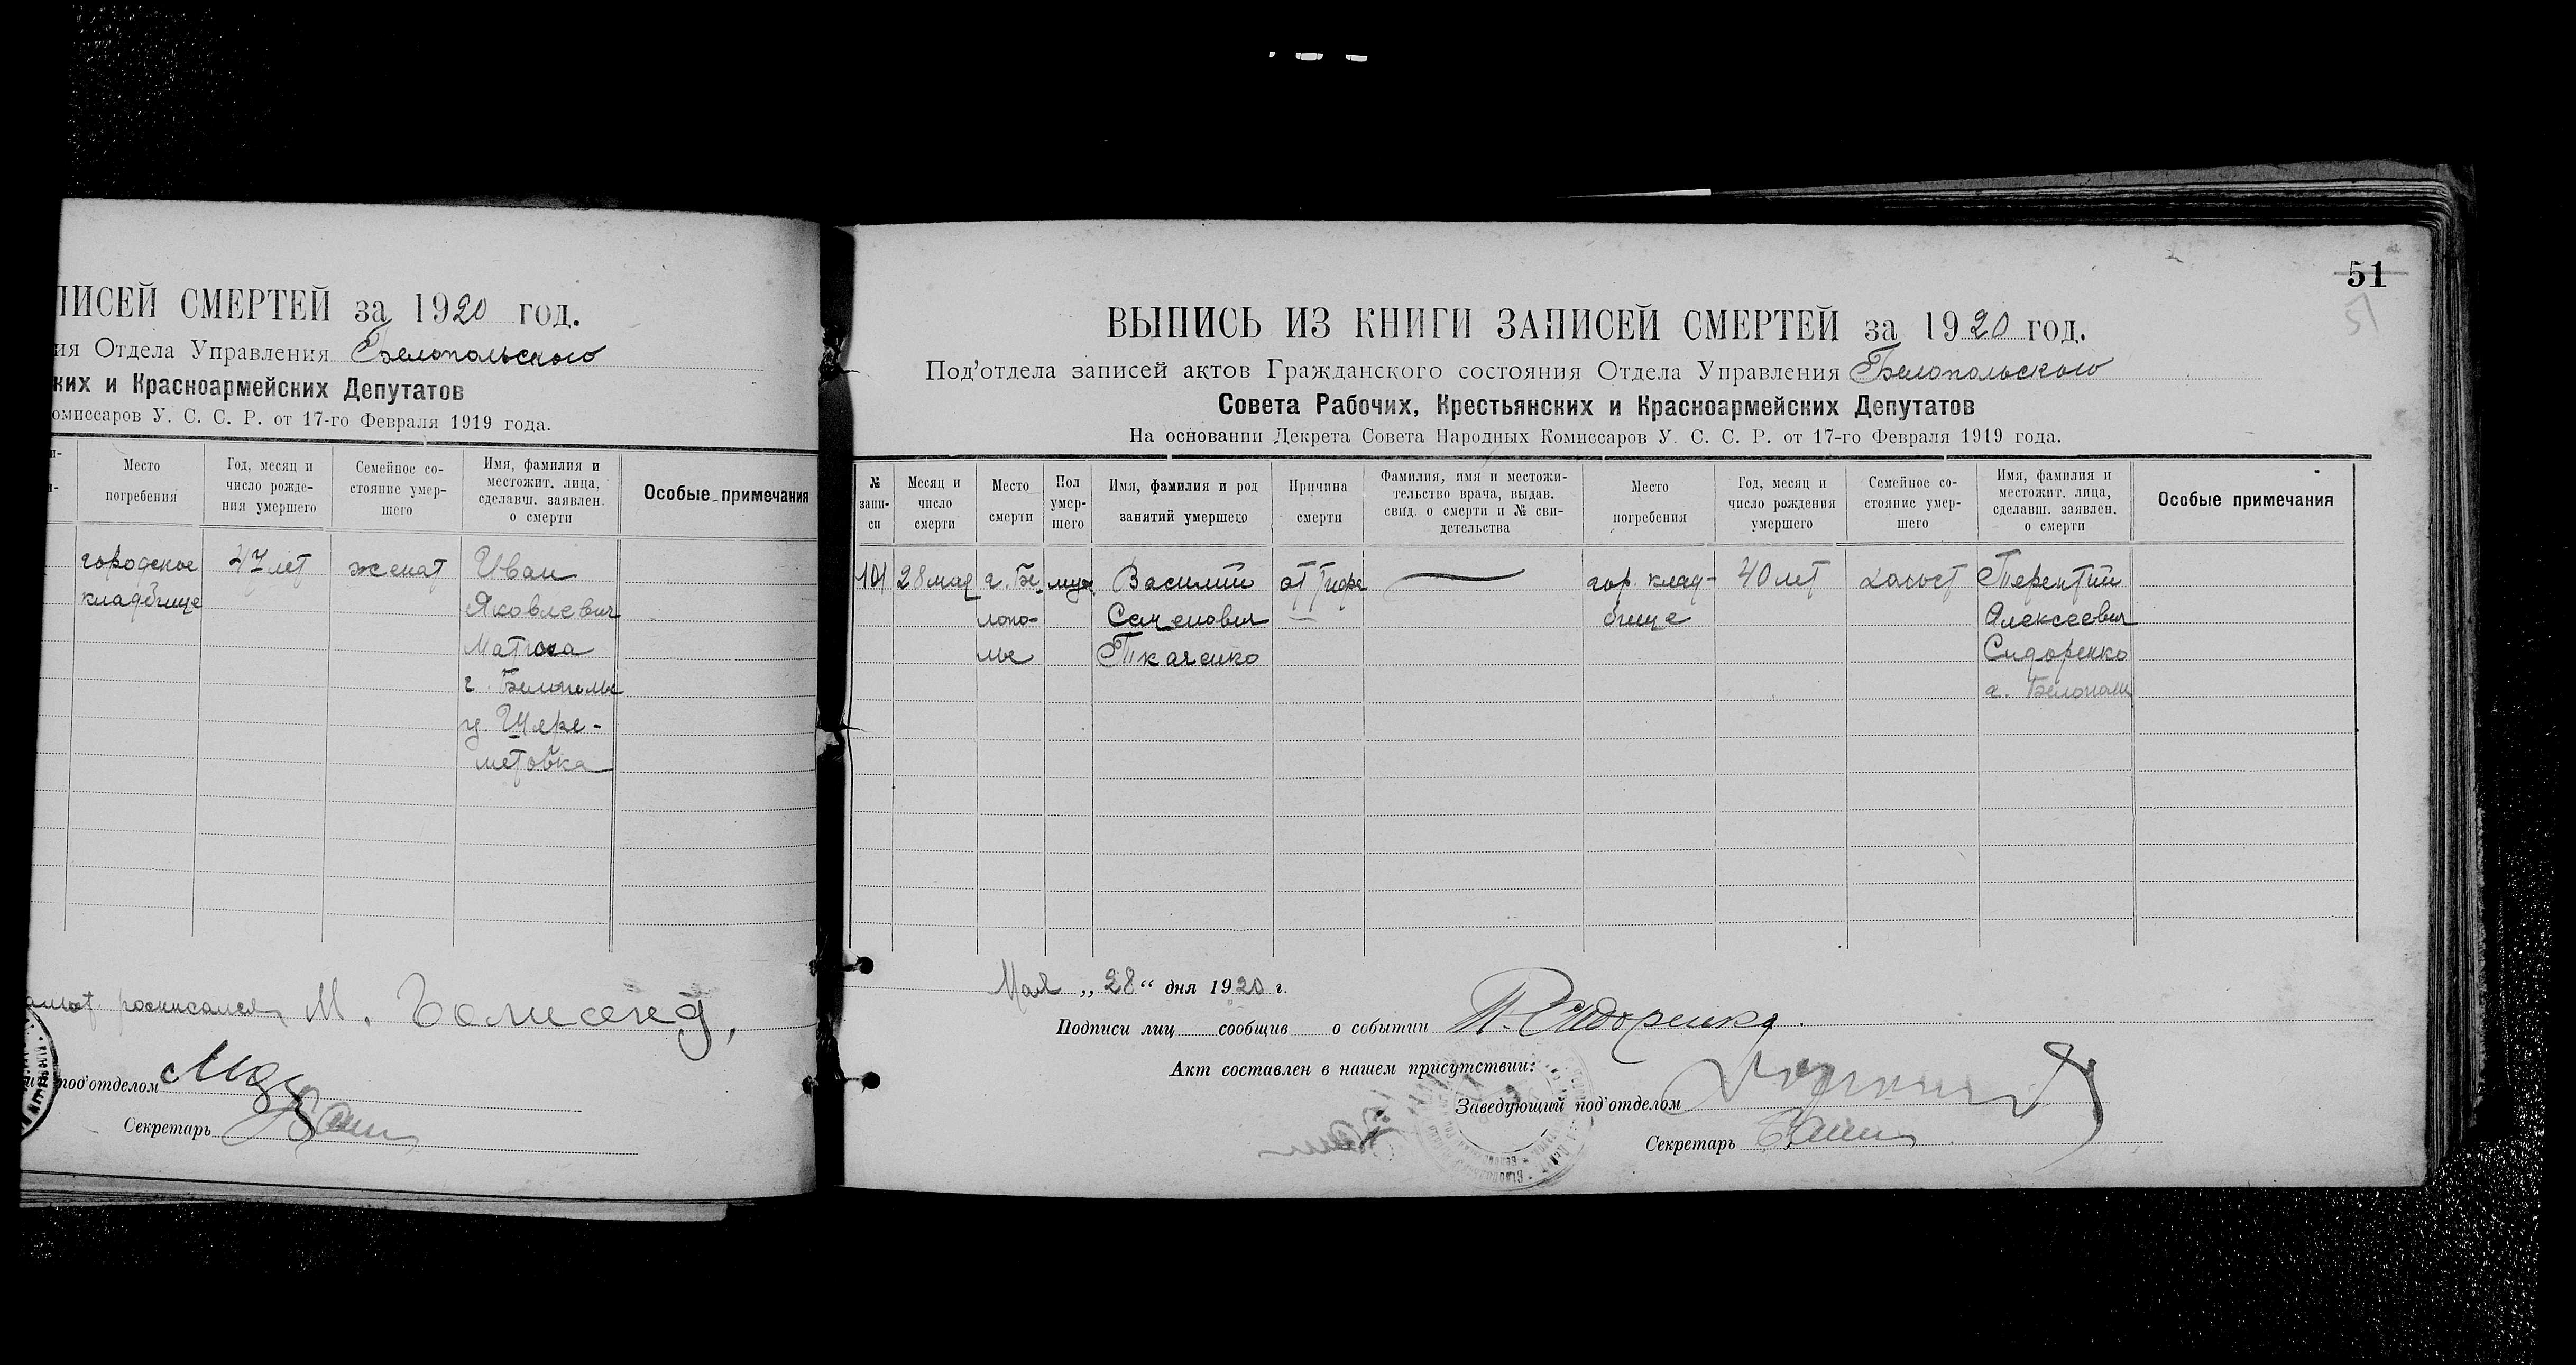 ПИСЕЙ СМЕРТЕЙ за 1920 год.
ия Отдела Управления Белопольского
ких и Красноармейских Депутатов
омиссаров У. С. С. Р. от 17-го Февраля 1919 года.
Место погребения
Год, месяц и число рожде- ния умершего
Семейное со- стояние умер- шего
Имя, фамилия и местожит. лица, сделавш. заявлен. о смерти
Особые примечания
городское 47 лет женат Иван
кладбище Яковлевич
Матюха
г. Белополье
у. Шере-
метовка
росписался М.
под'отделом
Секретарь
51
51
ВЫПИСЬ ИЗ КНИГИ ЗАПИСЕЙ СМЕРТЕЙ за 1920 год.
Под'отдела записей актов Гражданского состояния Отдела Управления Белопольского
Совета Рабочих, Крестьянских и Красноармейских Депутатов
На основании Декрета Совета Народных Комиссаров У. С. С. Р. от 17-го Февраля 1919 года.
№ запи- си
Месяц и число смерти
Место смерти
Пол умер- шего
Имя, фамилия и род занятий умершего
Причина смерти
Фамилия, имя и местожи- тельство врача, выдав. свид. о смерти и № сви- детельства
Место погребения
Год, месяц и число рождения умершего
Семейное со- стояние умер- шего
Имя, фамилия и местожит. лица, сделавш. заявлен. о смерти
Особые примечания
101 28 мая г. Бе- муж Василий от Тифа гор. клад- 40 лет холост Терентий
лопо- Семенович бище Алексеевич
лье Ткаченко Сидоренко
г. Белополь
Мая „28“ дня 1920 г.
Подписи лиц сообщив о событии Т. Сидоренко.
Акт составлен в нашем присутствии:
Заведующий под'отделом
Секретарь